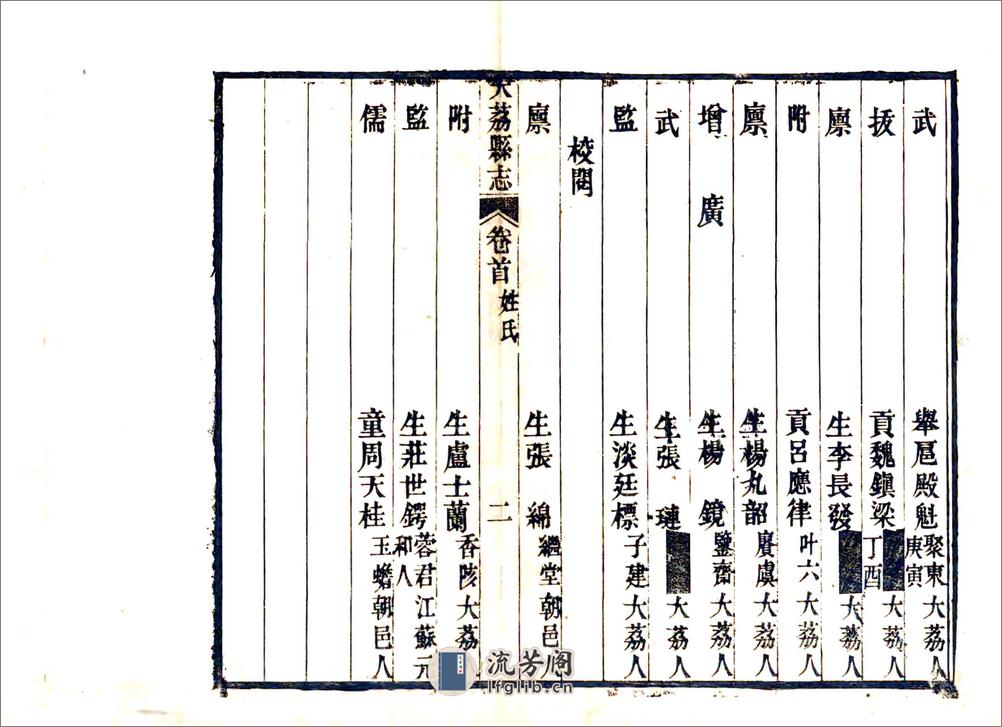 武舉扈殿魁聚東庚寅大荔人
拔貢魏鎮梁丁酉大荔人
廩生李長發大荔人
附貢呂應律叶六大荔人
廩生楊九韶賡虞大荔人
增廣生楊鏡鑒齋大荔人
武生張璉大荔人
監生淡廷標子建大荔人
校閱
廩生張綿繼堂朝邑
大荔縣志 卷首 姓氏 二
附生盧士蘭香陔大荔
監生莊世鍔蓉君江蘇元和人
儒童周天桂玉蟾朝邑人
流芳阁
lfglib.cn